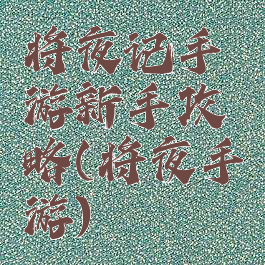 将夜记手
游新手攻
略(将夜手
游)